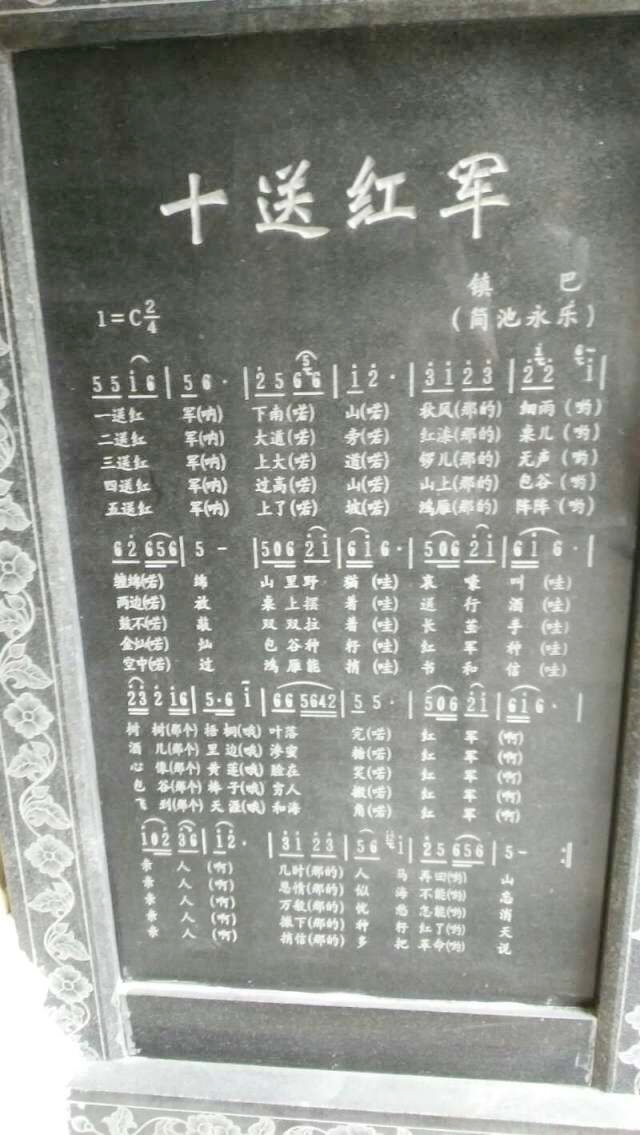 十送红军
镇 巴
1=C 2/4 (简池永乐)
5 5 i 6 | 5 6· | 2 5 6 6 | i 2· | 3 i 2 3 | 2 2 i |
一送红 军(呐) 下南(喏) 山(喏) 秋风(那的) 细雨(哟)
二送红 军(呐) 大道(喏) 旁(喏) 红漆(那的) 桌儿(哟)
三送红 军(呐) 上大(喏) 道(喏) 锣儿(那的) 无声(哟)
四送红 军(呐) 过高(喏) 山(喏) 山上(那的) 包谷(哟)
五送红 军(呐) 上了(喏) 坡(喏) 鸿雁(那的) 阵阵(哟)
6 2 6 5 6 | 5 - | 5 0 6 2 i | 6 i 6· | 5 0 6 2 i | 6 i 6· |
缠绵(喏) 绵 山 里 野 猫 (哇) 哀 嚎 叫 (哇)
两边(喏) 放 桌 上 摆 着 (哇) 送 行 酒 (哇)
鼓不(喏) 敲 双 双 拉 着 (哇) 长 茧 手 (哇)
金灿(喏) 灿 包 谷 种 籽 (哇) 红 军 种 (哇)
空中(喏) 过 鸿 雁 能 捎 (哇) 书 和 信 (哇)
2 3 2 i 6 | 5· 6 i | 6 6 5 6 4 2 | 5 5· | 5 0 6 2 i | 6 i 6· |
树 树(那个) 梧 桐(哦) 叶落 完(喏) 红 军 (啊)
酒 儿(那个) 里 边(哦) 掺蜜 糖(喏) 红 军 (啊)
心 像(那个) 黄 莲(哦) 脸在 笑(喏) 红 军 (啊)
包 谷(那个) 棒 子(哦) 穷人 搬(喏) 红 军 (啊)
飞 到(那个) 天 涯(哦) 和海 角(喏) 红 军 (啊)
i 0 2 3 6 | i 2· | 3 i 2 3 | 5 6 i | 2 5 6 5 6 | 5 - :|
亲 人 (啊) 几时(那的) 人 马 再回(哟) 山
亲 人 (啊) 恩情(那的) 似 海 不能(哟) 忘
亲 人 (啊) 万般(那的) 忧 愁 怎能(哟) 消
亲 人 (啊) 撒下(那的) 种 籽 红了(哟) 天
亲 人 (啊) 捎信(那的) 多 把 革命(哟) 说